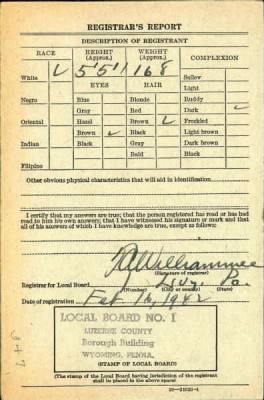 REGISTRAR'S REPORT
DESCRIPTION OF REGISTRANT
RACE HEIGHT (Approx.) WEIGHT (Approx.) COMPLEXION
White 5'5" 168 Sallow
EYES HAIR Light
Negro Blue Blonde Ruddy
Gray Red Dark
Oriental Hazel Brown Freckled
Brown Black Light brown
Indian Black Gray Dark brown
Bald Black
Filipino
Other obvious physical characteristics that will aid in identification
I certify that my answers are true; that the person registered has read or has had
read to him his own answers; that I have witnessed his signature or mark and that
all of his answers of which I have knowledge are true, except as follows:
(Signature of registrar)
Registrar for Local Board Pa.
(Number) (City or county) (State)
Date of registration Feb 16, 1942
LOCAL BOARD NO. 1
LUZERNE COUNTY
Borough Building
WYOMING, PENNA.
(STAMP OF LOCAL BOARD)
(The stamp of the Local Board having jurisdiction of the registrant
shall be placed in the above space)